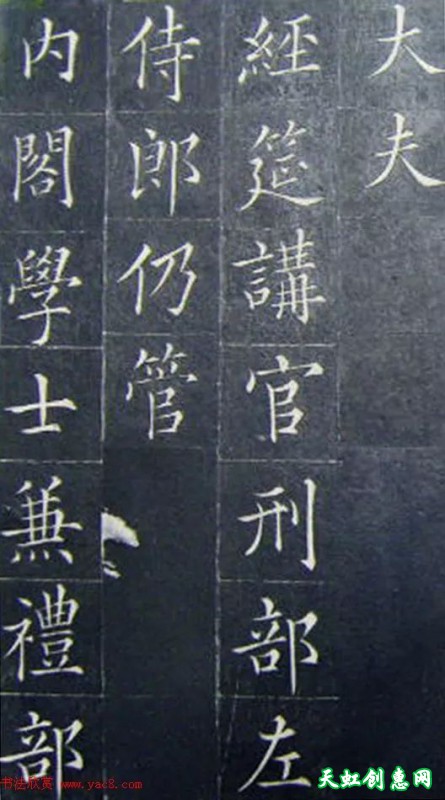 大夫
經筵講官刑部左
侍郎仍管
内閣學士兼禮部
书法欣赏 www.yac8.com
天虹创惠网